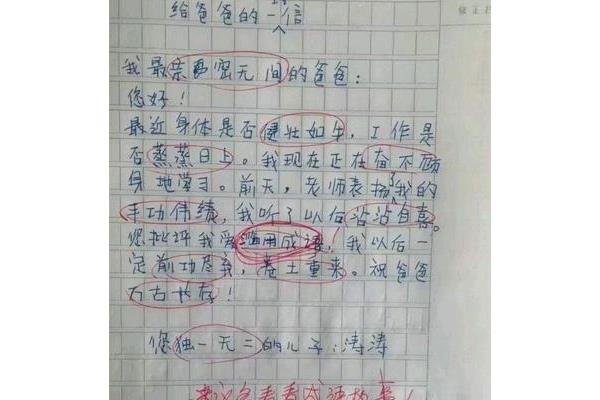 给爸爸的一信
我最亲密无间的爸爸：
您好！
最近身体是否健壮如牛，工作是
否蒸蒸日上。我现在正在奋不顾
身地学习。前天，老师表扬我的
丰功伟绩，我听了以后沾沾自喜。
您批评我爱滥用成语，我以后一
定前功尽弃，卷土重来。祝爸爸
万古长存！
您独一无二的儿子：涛涛